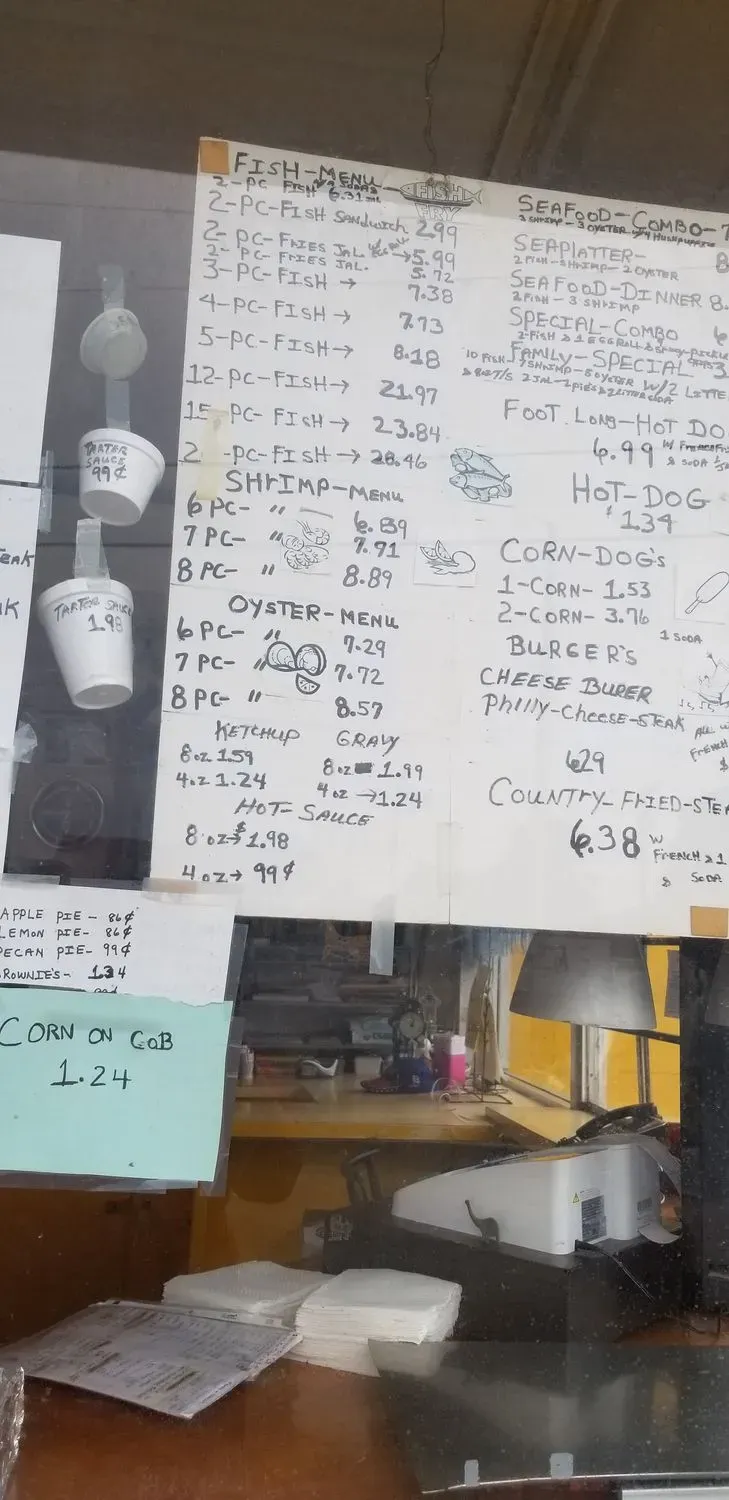 FISH-MENU
2-PC FISH 6.31
FISH
FRY
2-PC-FISH SANDWICH 2.99
2-PC-FRIES JAL. → 5.99
2-PC-FRIES JAL. 5.72
3-PC-FISH → 7.38
4-PC-FISH → 7.73
5-PC-FISH → 8.18
12-PC-FISH → 21.97
15-PC-FISH → 23.84
2 -PC-FISH → 28.46
SHRIMP-MENU
6 PC- " 6.89
7 PC- " 7.71
8 PC- " 8.89
OYSTER-MENU
6 PC- " 7.29
7 PC- " 7.72
8 PC- " 8.57
KETCHUP
8oz 1.59
4oz 1.24
GRAVY
8oz 1.99
4oz → 1.24
HOT-SAUCE
8oz → $1.98
4oz → 99¢
SEAFOOD-COMBO-7
3 SHRIMP-3 OYSTER W/4 HUSHPUPPIE
SEAPLATTER- 8
2 FISH-SHRIMP-2 OYSTER
SEAFOOD-DINNER 8.
2 FISH-3 SHRIMP
SPECIAL-COMBO 6
2-FISH & 1 EGGROLL &
FAMILY-SPECIAL- 3
10 FISH 7 SHRIMP-8 OYSTER W/2 LITTE
FOOT LONG-HOT DO
6.99 W
& SODA
HOT-DOG
$1.34
CORN-DOG'S
1-CORN- 1.53
2-CORN- 3.76
1 SODA
BURGER'S
CHEESE BURER
PHILLY-CHEESE-STEAK
6.29
ALL
FRENCH
$
COUNTRY-FRIED-STEA
6.38 W
FRENCH & 1
& SODA
TARTER
SAUCE
99¢
TARTER SAUCE
1.98
TEAK
K
APPLE PIE - 86¢
LEMON PIE- 86¢
PECAN PIE- 99¢
ROWNIE'S- 1.34
CORN ON COB
1.24